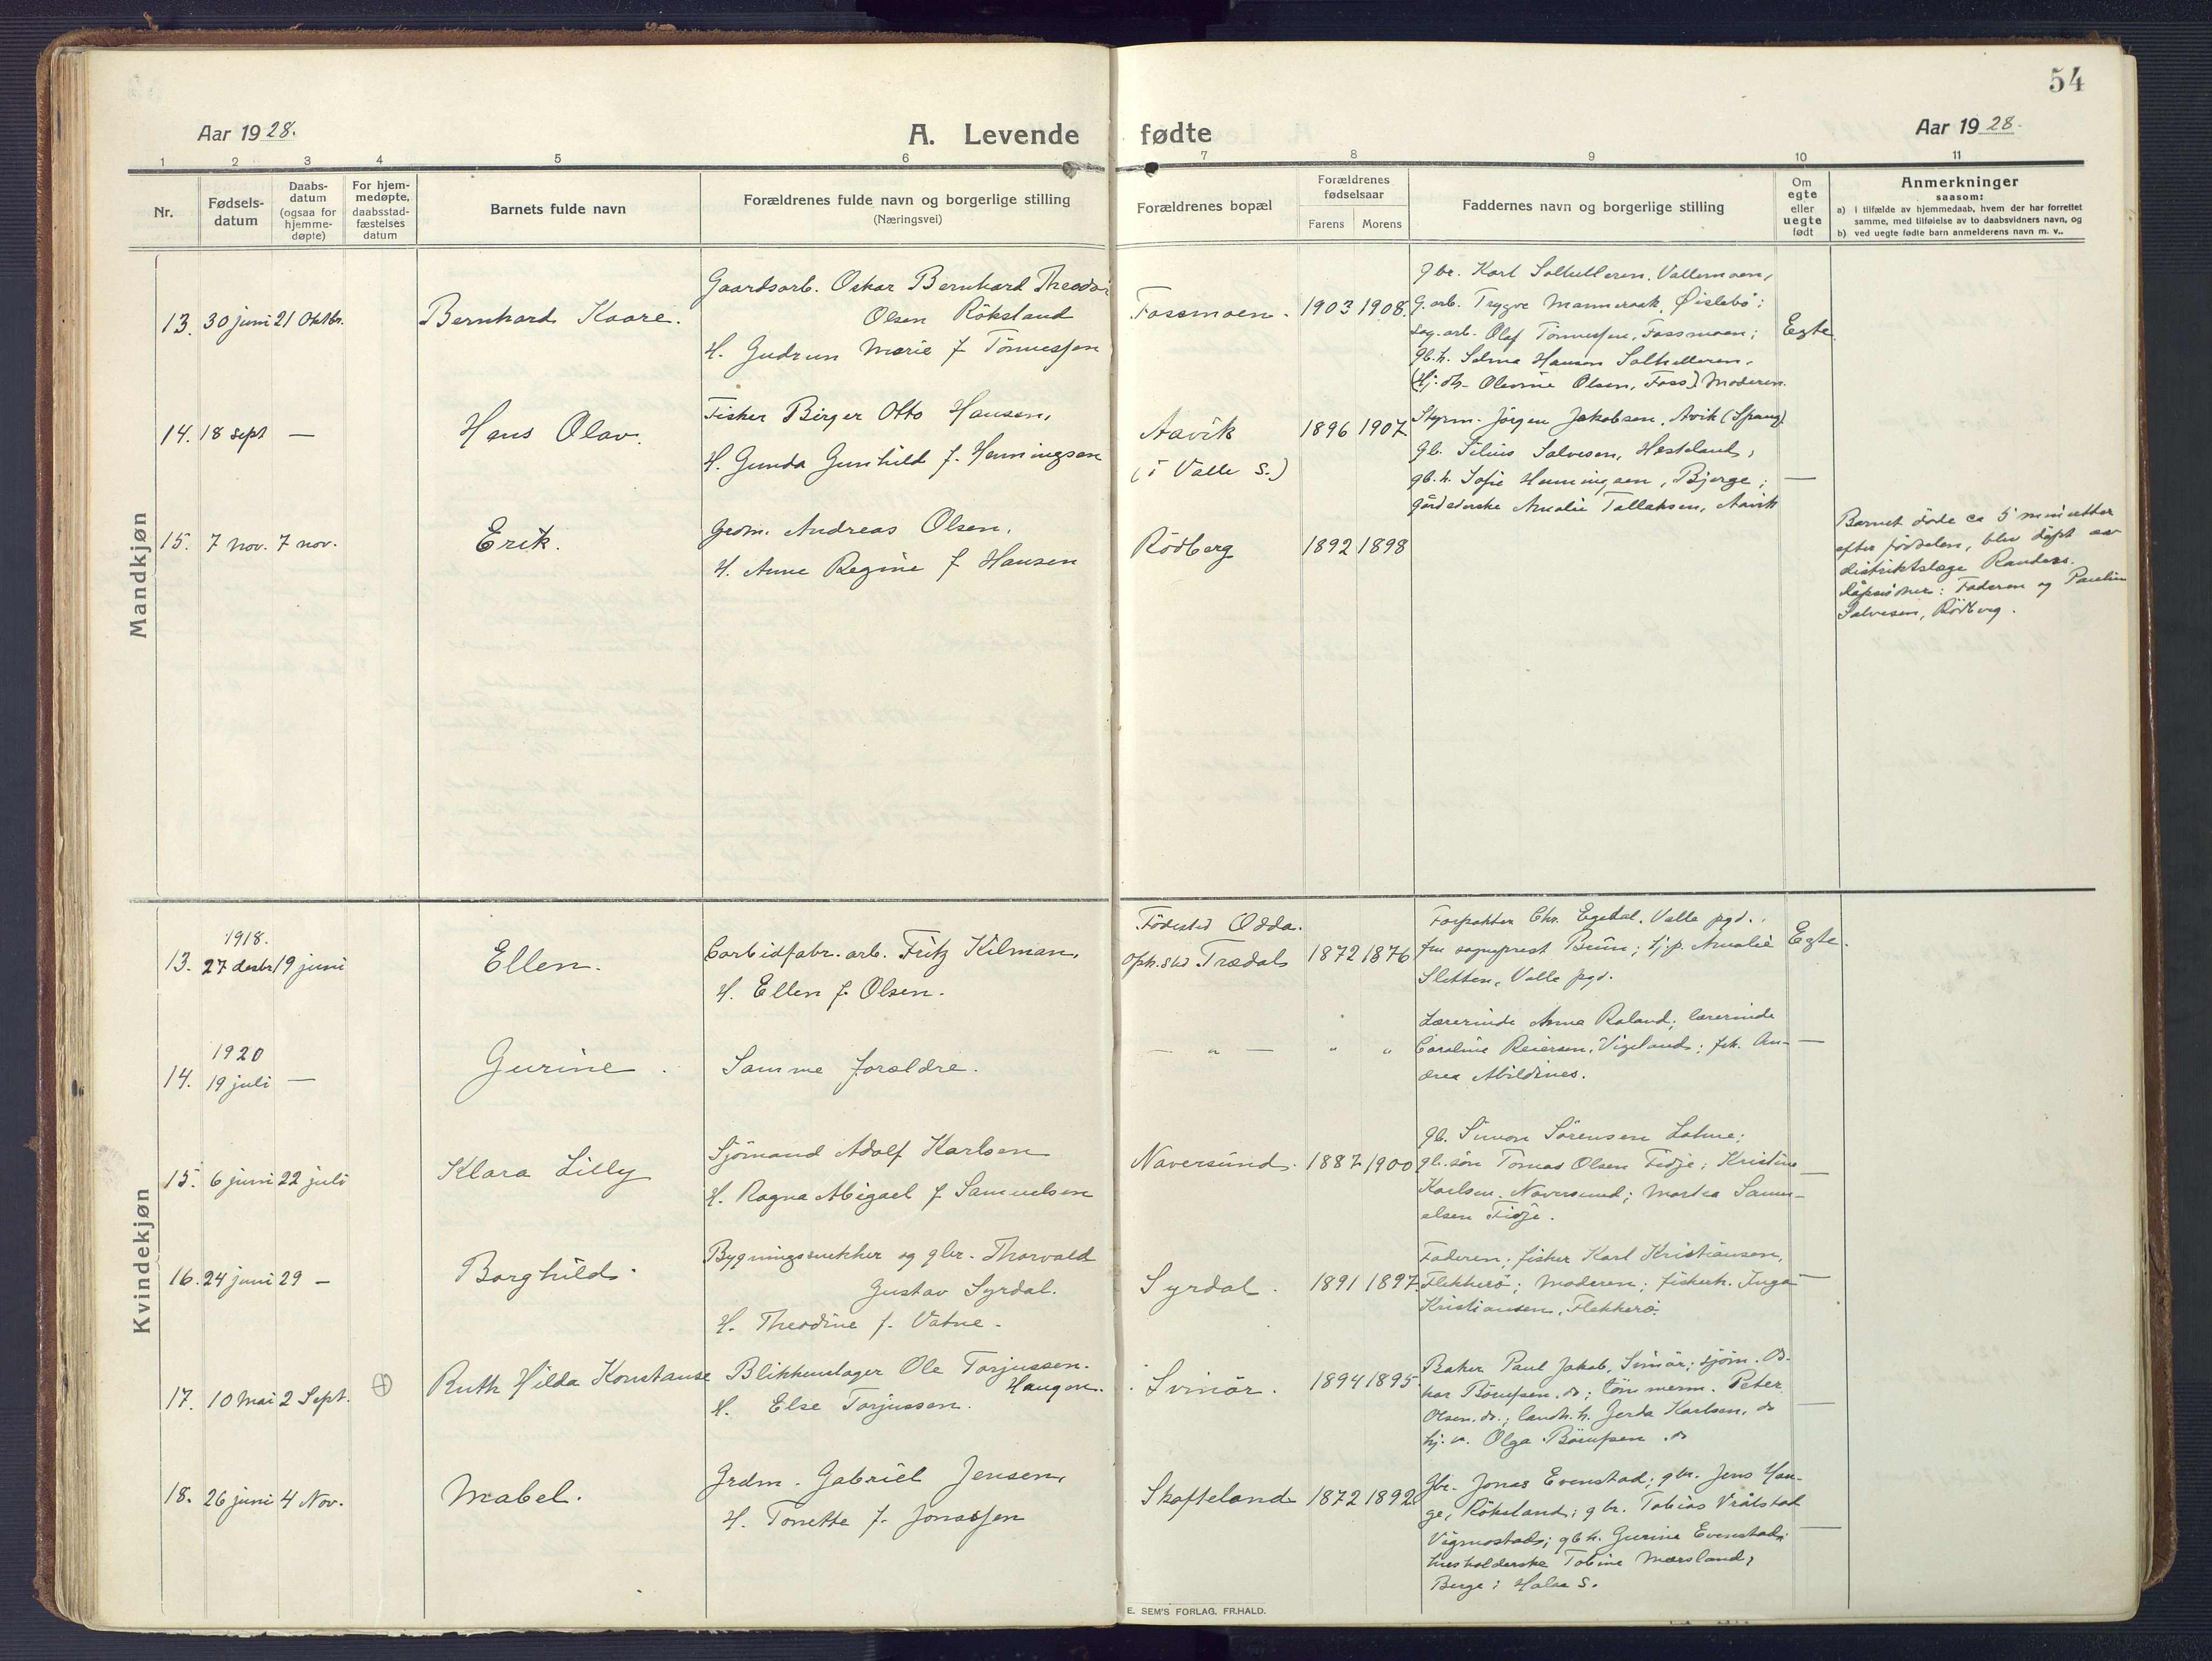 54
Aar 1928.
A. Levende fødte
Aar 1928.
1 2 3 4 5 6 7 8 9 10 11
Nr.
Fødsels-
datum
Daabs-
datum
(ogsaa for
hjemme-
døpte)
For hjem-
medøpte,
daabsstad-
fæstelses
datum
Barnets fulde navn
Forældrenes fulde navn og borgerlige stilling
(Næringsvei)
Forældrenes bopæl
Forældrenes
fødselsaar
Farens
Morens
Faddernes navn og borgerlige stilling
Om
egte
eller
uegte
født
Anmerkninger
saasom:
a) i tilfælde av hjemmedaab, hvem der har forrettet
samme, med tilføielse av to daabsvidners navn, og
b) ved uegte fødte barn anmelderens navn m. v..
Mandkjøn
13. 30 juni 21 Oktbr.
Bernhard Kaare.
Gaardsarb. Oskar Bernhard Theodor
Olsen Röksland
H. Gudrun Marie f Tönnessen
Fossmoen. 1903 1908.
gbr. Karl Solhelleren, Vallemoen,
G.arb. Trygve Manneraak, Øislebö;
sag.arb. Olaf Tönnessen, Fossmoen;
gb.h. Selma Hansen Solhelleren,
Olsen, Foss) Moderen.
Egte.
14. 18 sept —
Hans Olav.
Fisker Birger Otto Hansen,
H. Gunda Gunhild f. Henningsen
Aavik
(i Valle S.)
1896 1907
Styrm. Jörgen Jakobsen, Avik (Spang)
gb. Salvesen, Hesteland,
gb.h. Sofie Henningsen, Bjerge;
Amalie Tallaksen, Aavik
—
15. 7 nov. 7 nov.
Erik.
Grdm. Andreas Olsen,
H. Anne Regine f Hansen
Rödberg 1892 1898
Barnet döde ca 5 minutter
efter födselen, blev döpt av
distriktslæge Randers.
Faderen og Pauline
Salvesen, Rödberg.
Kvindekjøn
13. 1918.
27 desbr 19 juni
Ellen.
Carbidfabr. arb. Fritz Kilman,
H. Ellen f. Olsen.
Födested Odda.
oph.sted Trædal 1872 1876
Forpakter Chr. Egedal, Valle pgd.,
fru sogneprest Bruun; hj.p. Amalie
Sletten, Valle pgd.
Egte.
14. 1920
19 juli —
Gurine.
Samme forældre.
— " — " "
Lærerinde Anna Roland; lærerinde
Caroline Reiersen, Vigeland; frk. An-
drea Abildsnes.
—
15. 6 juni 22 juli
Klara Lilly
Sjömand Adolf Karlsen
H. Ragna Abigael f Samuelsen
Naversund. 1887 1900
gb. Simon Sörensen Lohne;
gb.sön Tomas Olsen Fidje; Kristine
Karlsen, Naversund; Martea Samu-
elsen Fidje.
—
16. 24 juni 29 —
Borghild.
Bygningssnekker og gbr. Thorvald
Gustav Syrdal.
H. Theodine f. Vatne.
Syrdal. 1891 1897.
Faderen; fisker Karl Kristiansen,
Flekkerö; Moderen; fiskerh. Inga
Kristiansen, Flekkerö.
—
17. 10 Mai 2 Sept.
Ruth Hilda Konstanse
Blikkenslager Ole Torjussen.
Haugen.
H. Else Torjussen.
Svinör. 1894 1895
Baker Paul Jakob, Svinör; sjöm. Os-
kar Börufsen, do; tömmerm. Peter
Olsen, do.; landh. h. Gerda Karlsen, do
hj. v. Olga Börufsen, do
—
18. 26 juni 4 Nov.
Mabel.
Grdm. Gabriel Jensen,
H. Tonette f. Jonassen
Skofteland 1872 1892
Gbr. Jonas Evenstad; gbr. Jens Hau-
ge, Röksland; gbr. Tobias Vråstad
Vigmostad; gbh. Gurine Evenstad;
husholderske Tobine Mæsland,
Berge i Halse S.
—
E. SEM'S FORLAG, FR.HALD.